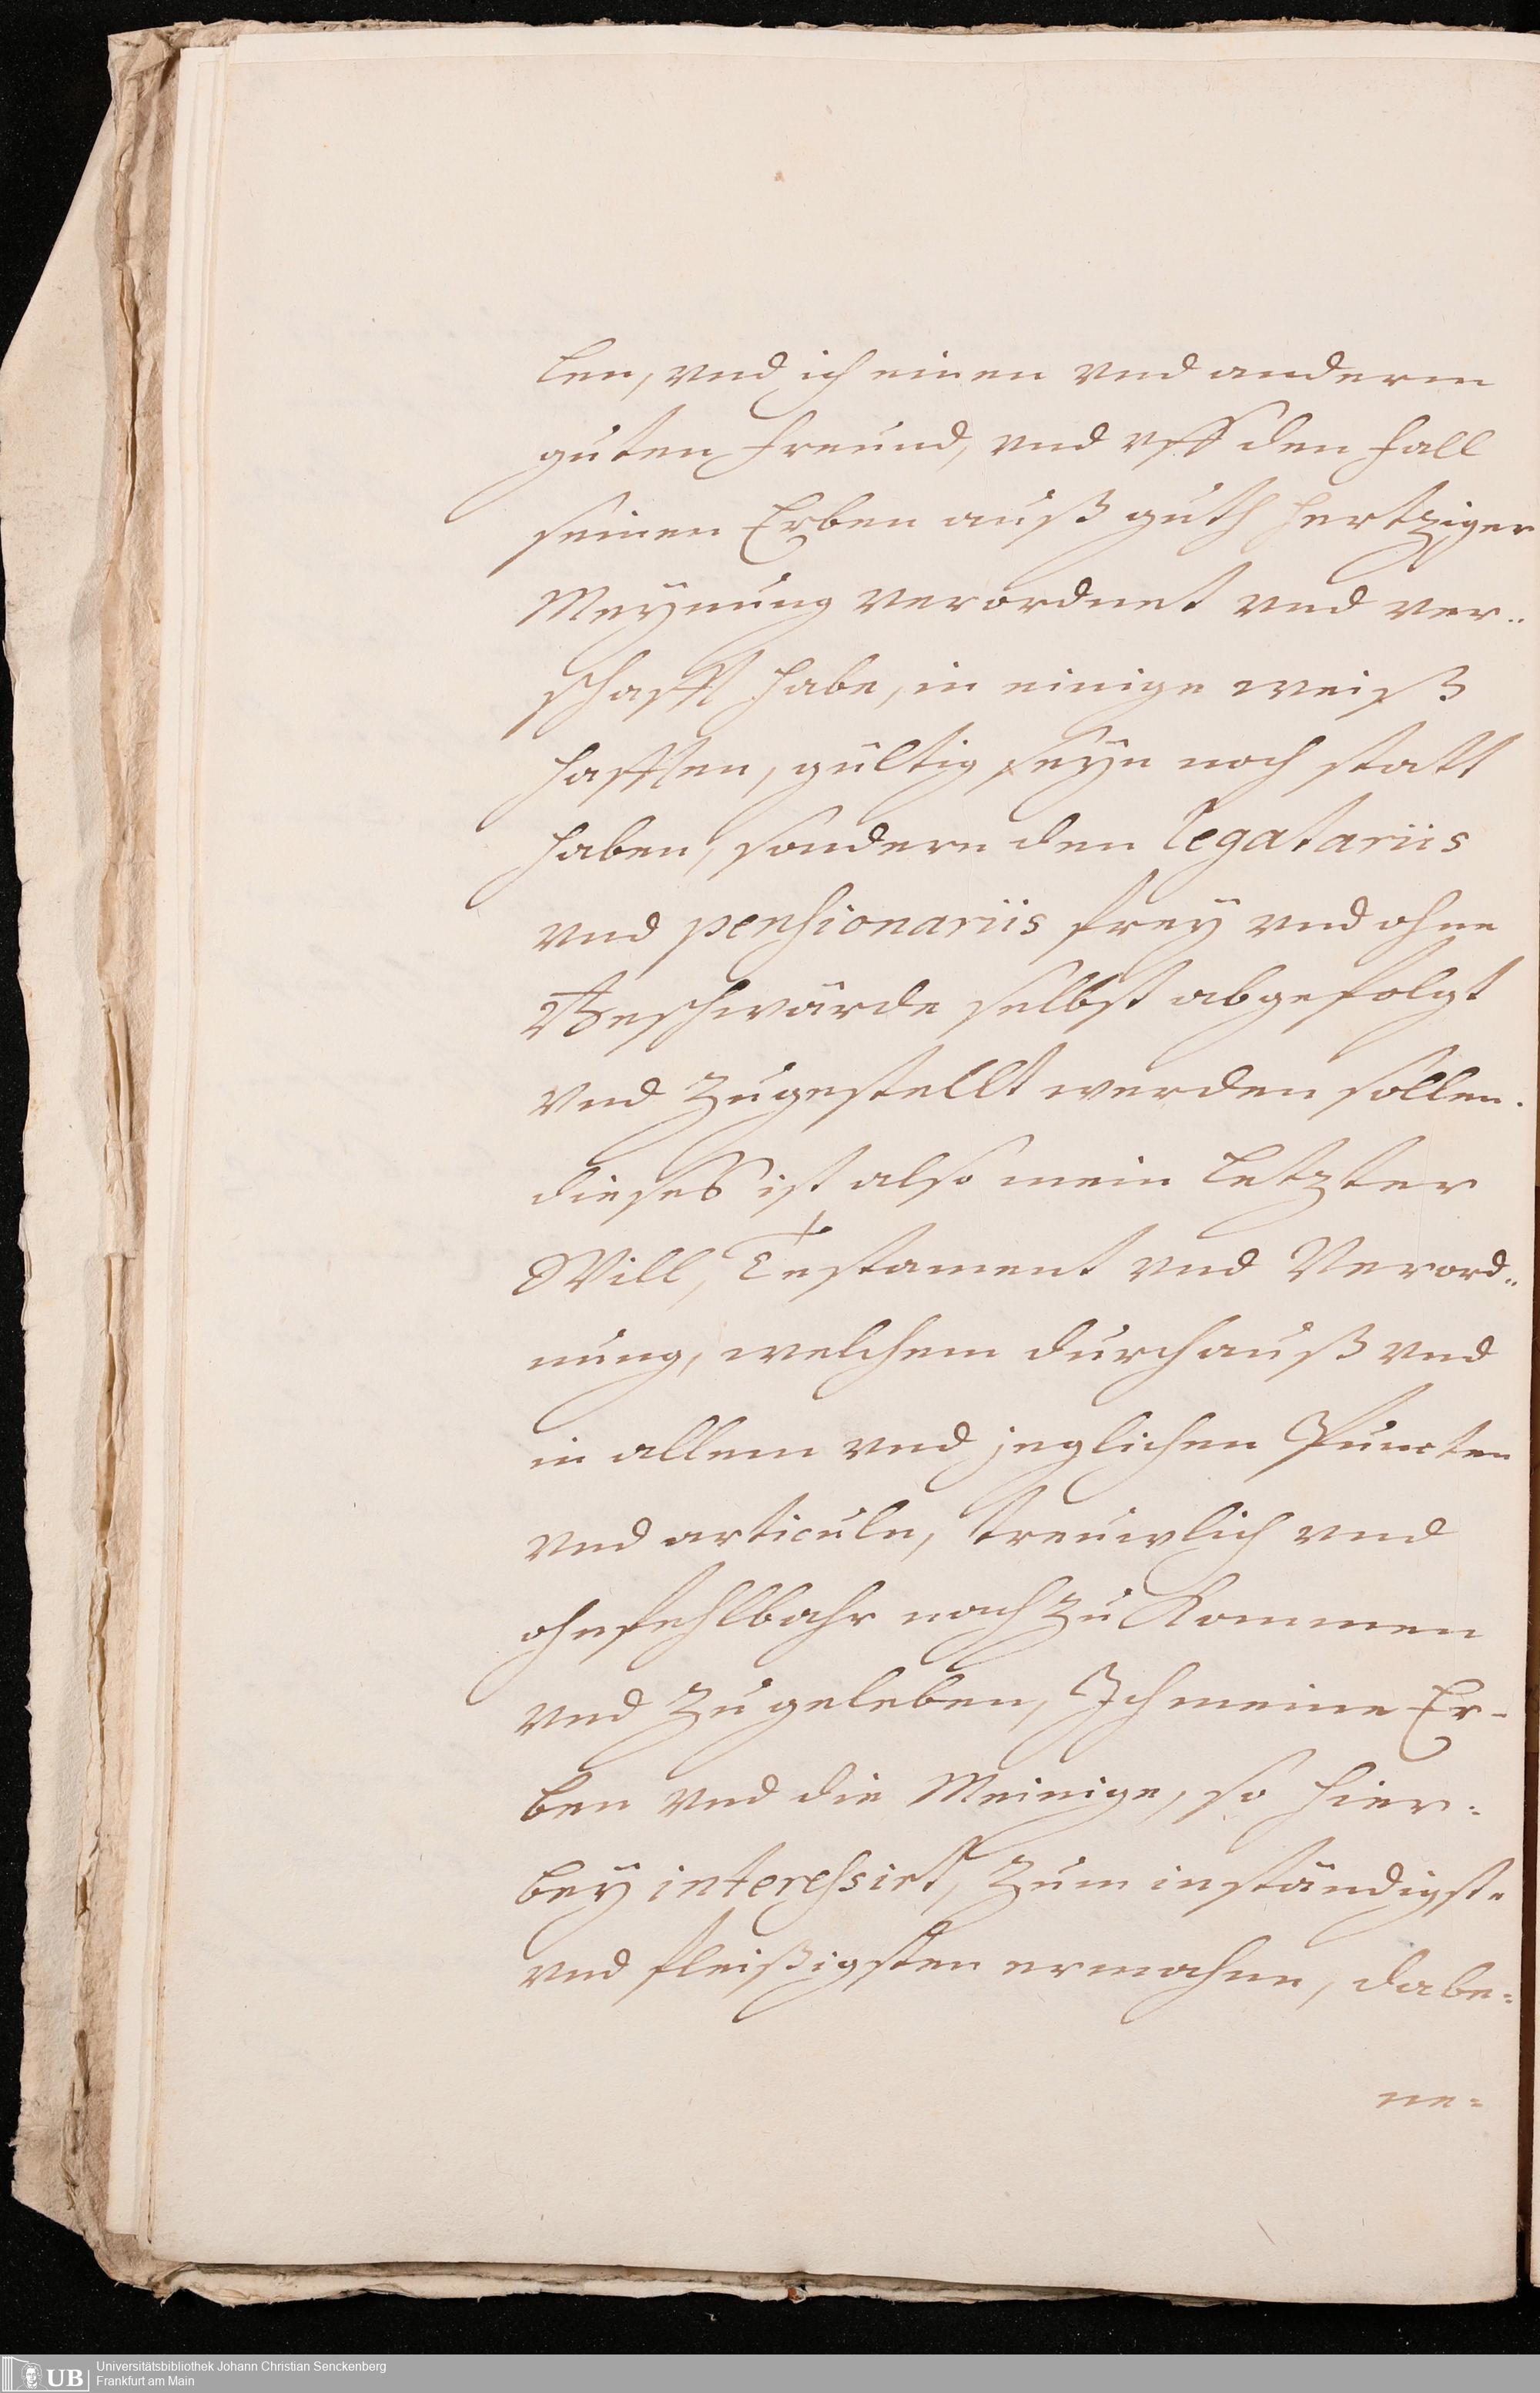 len, vnd ich einen vnd anderm
guten freund, vnd vff den fall
seinen Erben auß guth hertziger
Meÿnung verordnet vnd ver-
schafft habe, in einige weiß
hafften, gültig seÿn noch statt
haben, sondern den legatariis
vnd pensionariis freÿ vnd ohne
Beschwärde selbst abgefolgt
vnd zugestellt werden sollen.
dieses ist also mein letzter
Will, Testament vnd Verord-
nung, welchem durchauß vnd
in allem vnd jeglichen Puncten
vnd articuln, treuwlich vnd
ohnfehlbahr nach zu Kommen
vnd zu geleben, Ich meine Er-
ben vnd die Meinige, so hier-
beÿ interessirt, zum inständigst-
vnd fleißigsten ermahne, dabe-
ne-
UB
Universitätsbibliothek Johann Christian Senckenberg
Frankfurt am Main